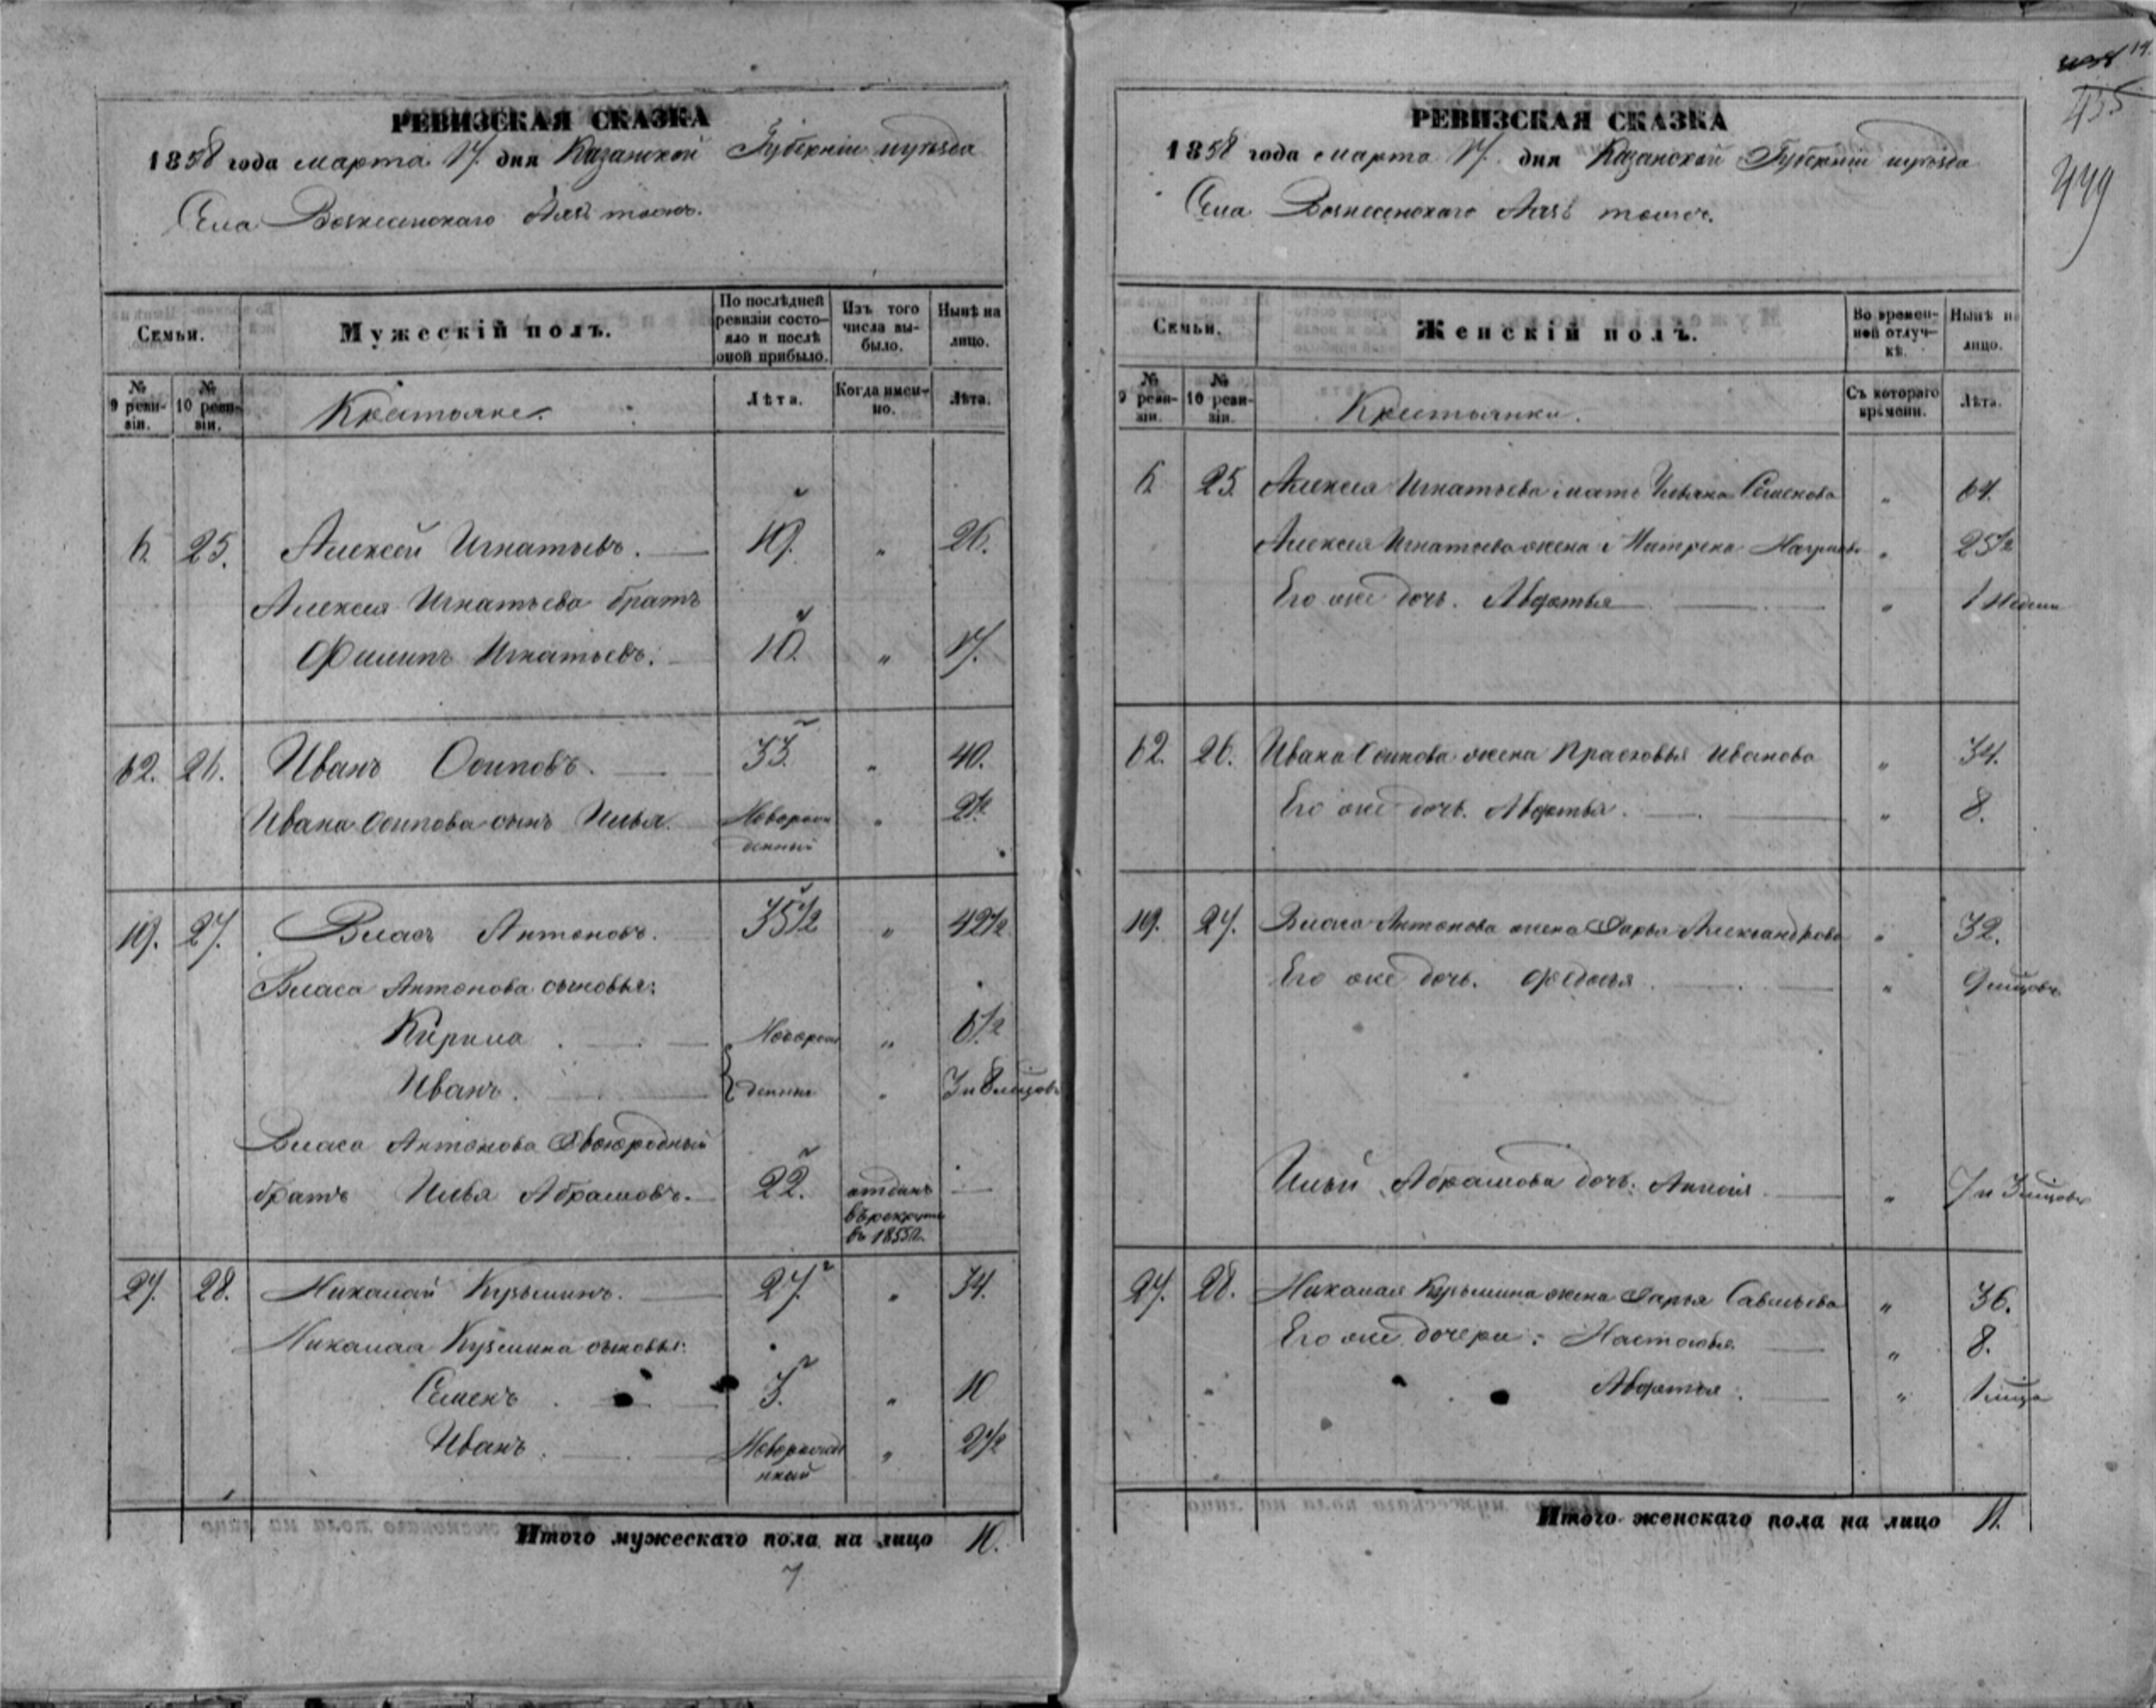 РЕВИЗСКАЯ СКАЗКА
1858 года марта 17. дня Казанской Губернiи и уѣзда
Села Вознесенскаго тожъ.
Семьи.
Мужескiй полъ.
По послѣдней ревизiи состояло и послѣ оной прибыло.
Изъ того числа выбыло.
Нынѣ на лицо.
№ 9 ревизiи.
№ 10 ревизiи.
Крестьяне.
Лѣта.
Когда именно.
Лѣта.
6. 25. Алексей Игнатьевъ. 19. " 26.
Алексея Игнатьева братъ
Филипъ Игнатьевъ. 10. " 17.
62. 26. Иванъ Осиповъ. 33. " 40.
Ивана Осипова сынъ Илья. Новорожденный " 2 1/2
19. 27. Власъ Антоновъ. 35 1/2 " 42 1/2
Власа Антонова сыновья:
Кирила Новорож " 6 1/2
Иванъ. денные " 3 и 8 мцовъ
Власа Антонова Двоюродный
братъ Илья Абрамовъ. 22. отданъ —
в рекруты
въ 1855 г.
27. 28. Николай Кузьминъ. 27. " 34.
Николая Кузьмина сыновья:
Семенъ 3. " 10
Иванъ. Новорожденный " 2 1/2
Итого мужескаго пола на лицо 10.
7
РЕВИЗСКАЯ СКАЗКА
1858 года марта 17. дня Казанской Губернiи и уѣзда
Села Вознесенскаго тожъ.
435
449
Семьи.
Женскiй полъ.
Во временной отлучкѣ.
Нынѣ н лицо.
№ 9 ревизiи.
№ 10 ревизiи.
Крестьянки.
Съ котораго времени.
Лѣта.
6 25. Алексея Игнатьева мать Ульяна Семенова " 64.
Алексея Игнатьева жена Матрена " 25 1/2
Его же дочь. Авдотья " 1 Недели
62. 26. Ивана Осипова жена Прасковья Иванова " 34.
Его же дочь. Авдотья. " 8.
19. 27. Власа Антонова жена Дарья Александрова " 32.
Его же дочь. Федосья " 9 мцовъ
Ильи Абрамова дочь: " 7 и 3 мцовъ
27. 28. Николая Кузьмина жена Дарья Савельева " 36.
Его же дочери: Настасья " 8.
Авдотья. " 1 мца
Итого женскаго пола на лицо 11.